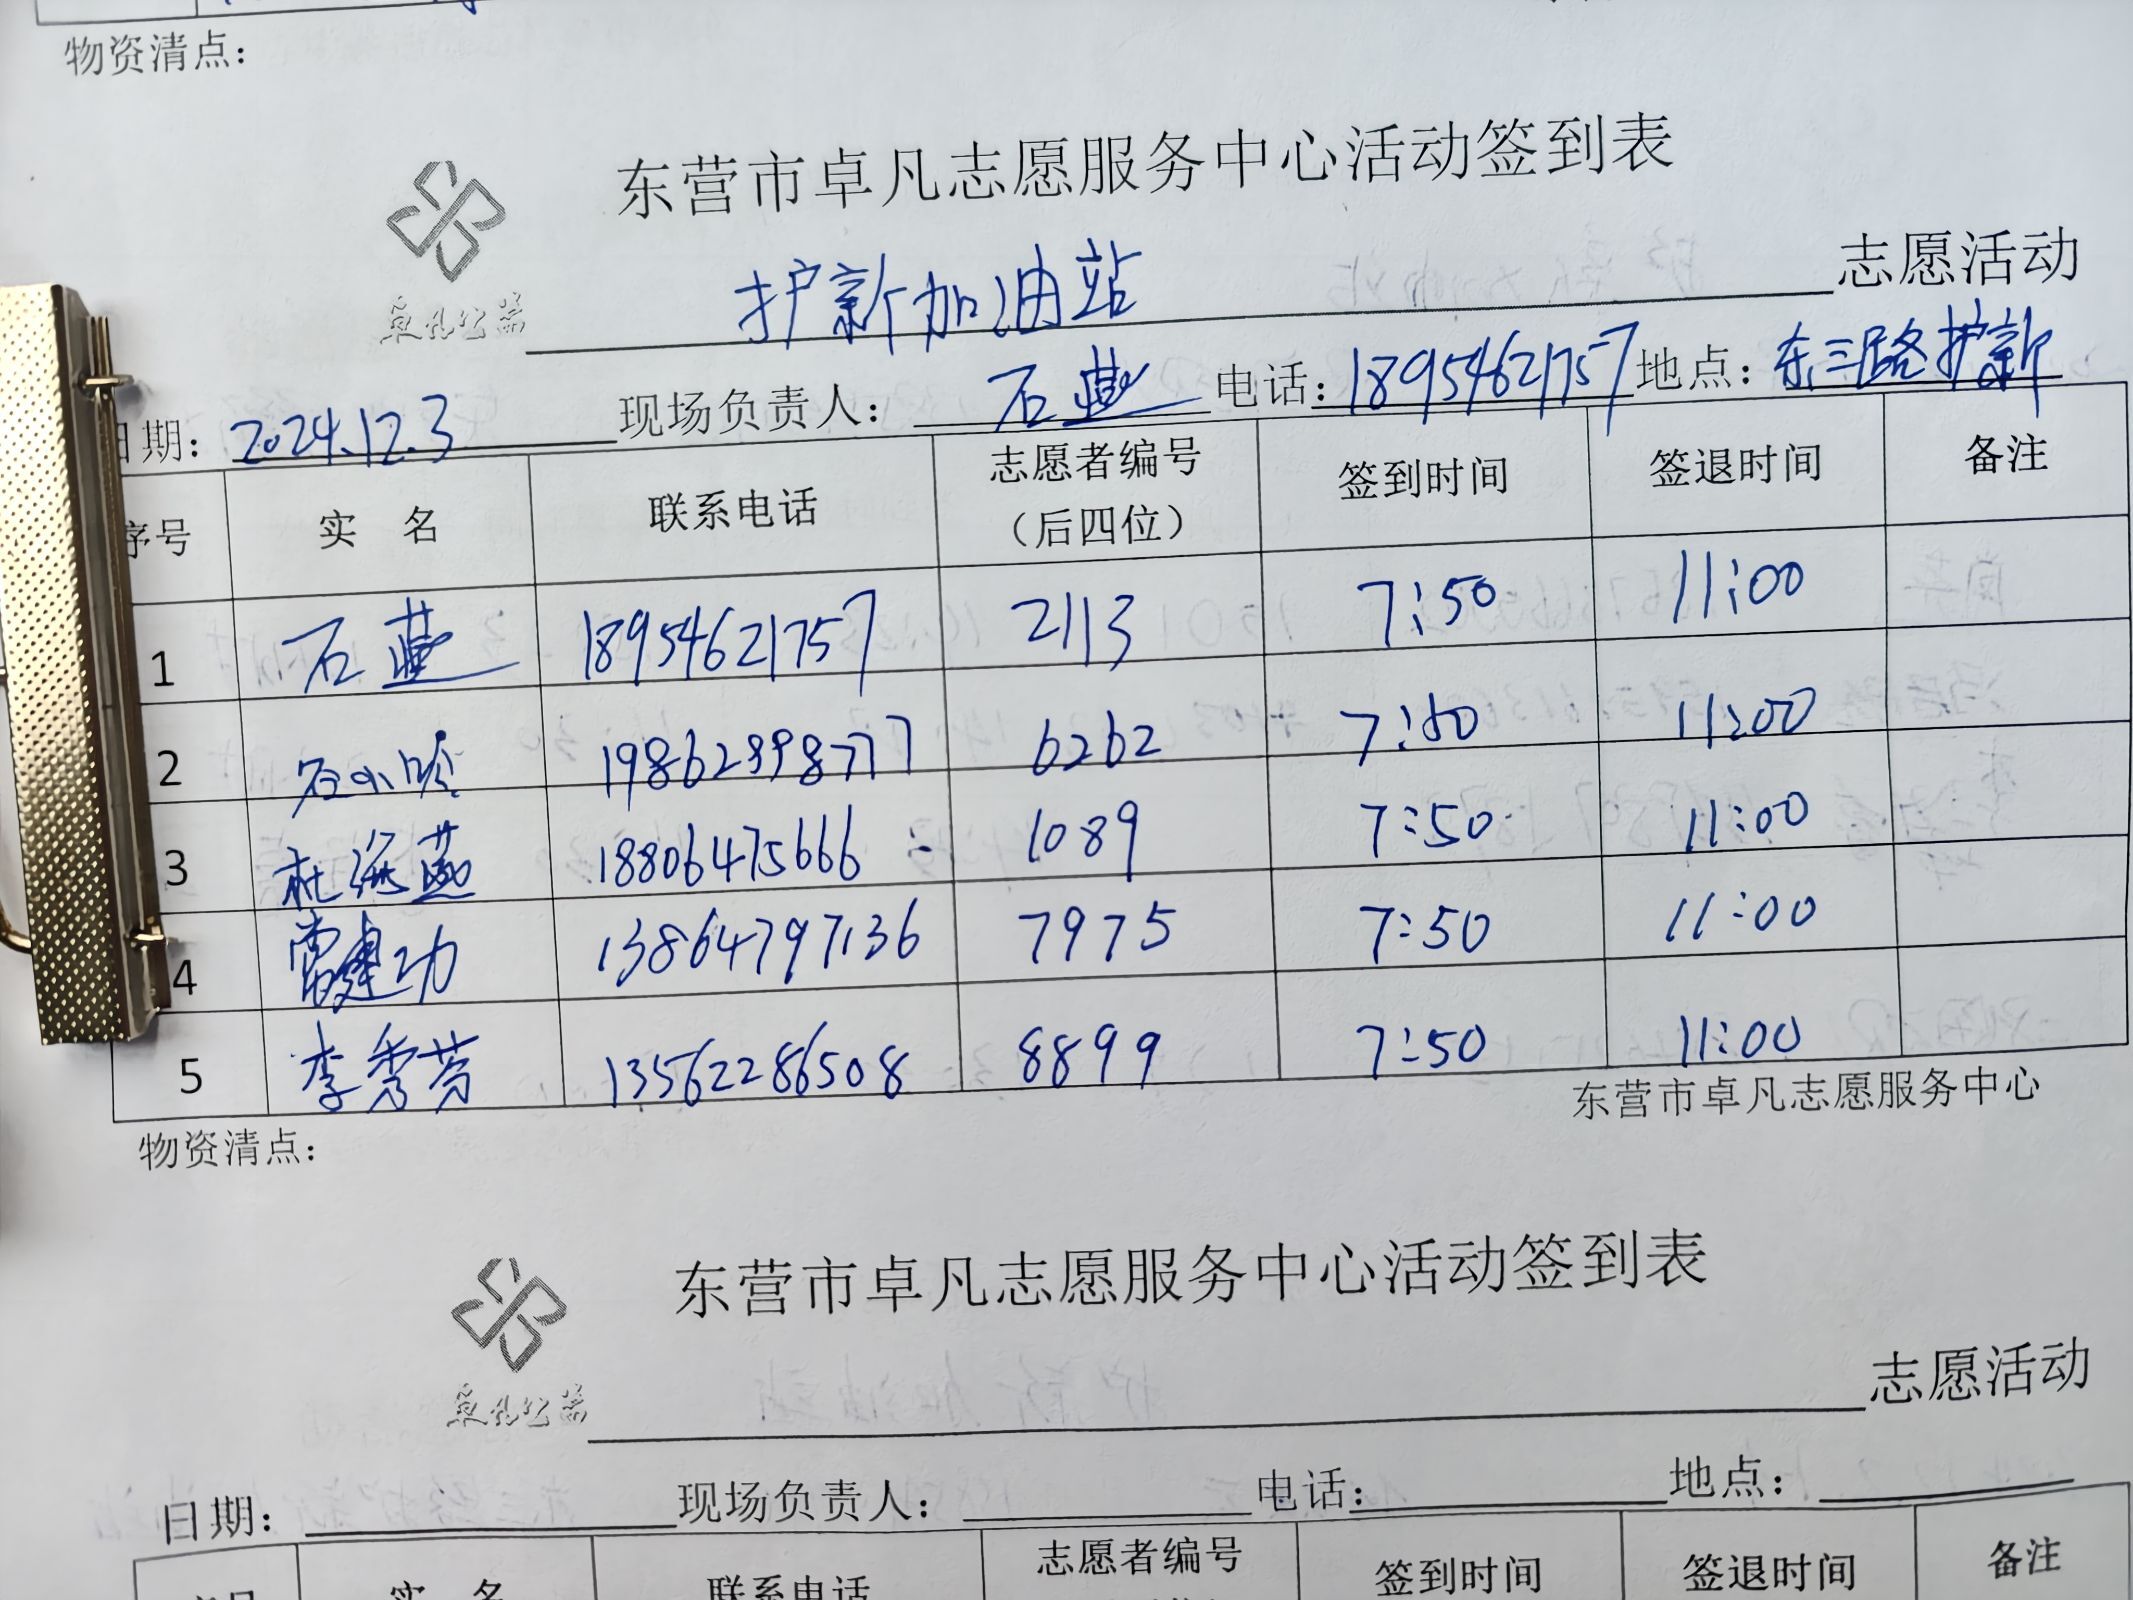 物资清点：
东营市卓凡志愿服务中心活动签到表
卓凡公益
护新加油站 志愿活动
日期：2024.12.3 现场负责人：石燕 电话：18954621757 地点：东三路护新
序号 实 名 联系电话 志愿者编号（后四位） 签到时间 签退时间 备注
1 石燕 18954621757 2113 7:50 11:00
2 石小玲 19862398777 6262 7:50 11:00
3 杜海燕 18806475666 1089 7:50 11:00
4 常建功 13864797136 7975 7:50 11:00
5 李秀芳 13562286508 8899 7:50 11:00
东营市卓凡志愿服务中心
物资清点：
东营市卓凡志愿服务中心活动签到表
卓凡公益
志愿活动
日期： 现场负责人： 电话： 地点：
序号 实 名 联系电话 志愿者编号 签到时间 签退时间 备注